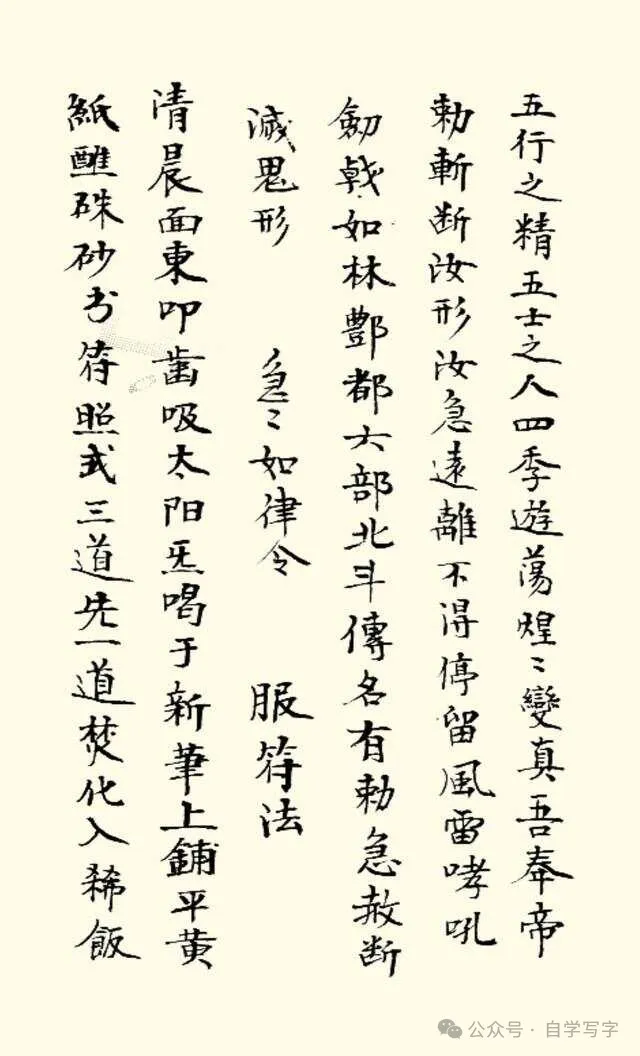 五行之精五士之人四季遊蕩煌〻變真吾奉帝
勅斬断汝形汝急遠離不得停留風雷哮吼
劍戟如林酆都六部北斗傳名有勅急赦断
滅鬼形 急〻如律令 服符法
清晨面東叩齒吸太阳炁喝于新筆上鋪平黄
紙蘸硃砂书符照式三道先一道焚化入稀飯
公众号·自学写字